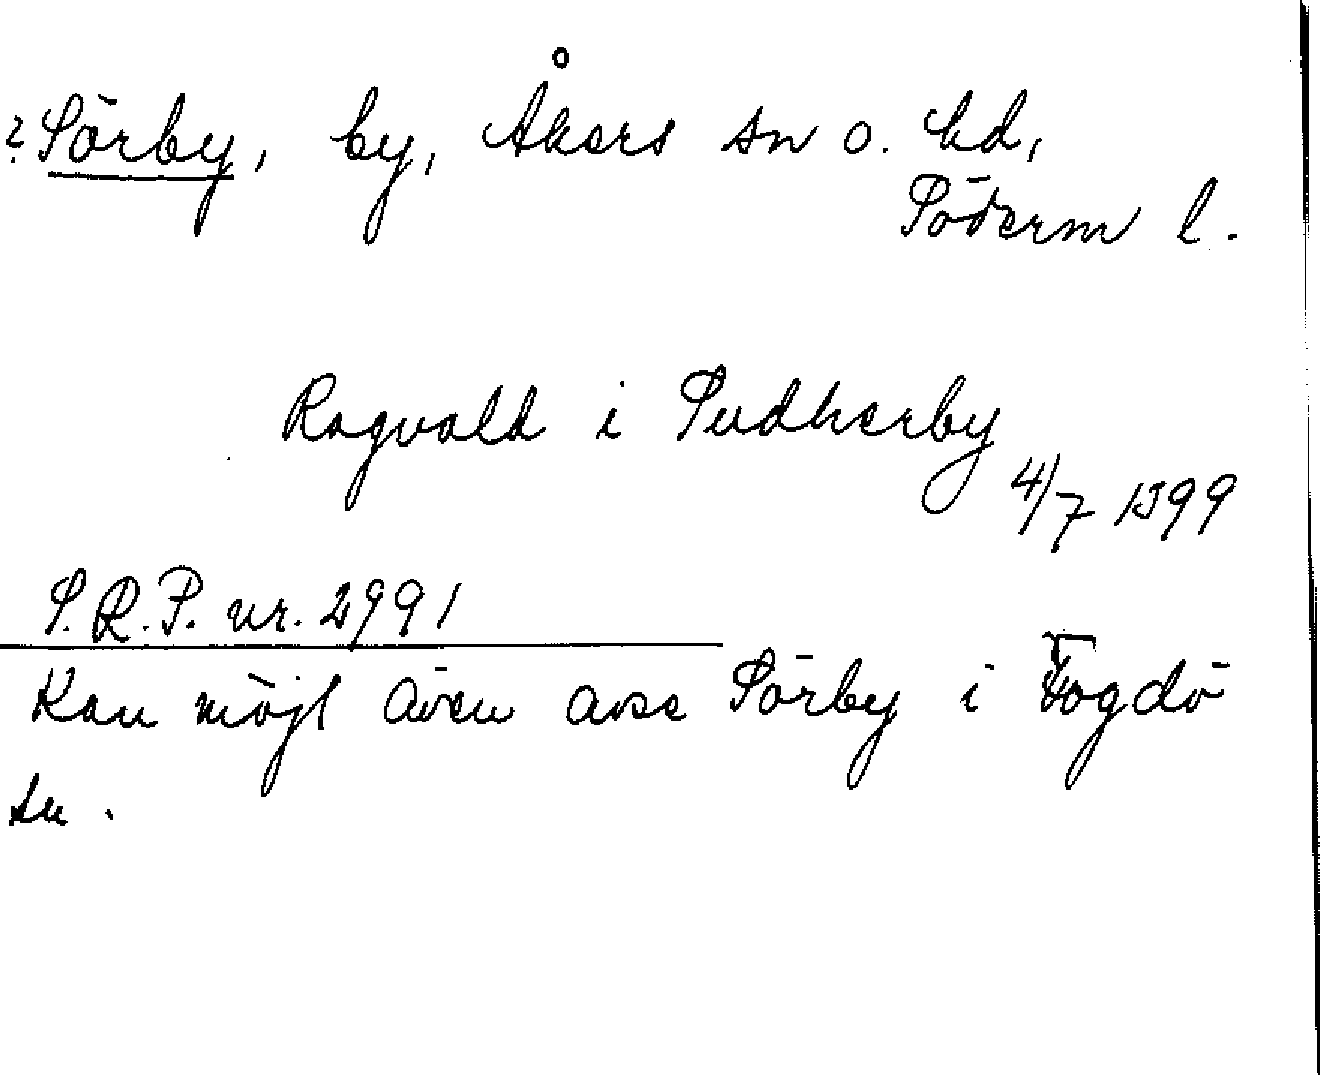 ? Sörby, by, Åkers sn o. hd,
Söderm l.
Ragvald i Sudherby
4/7 1399
S.R.P. nr. 2991
Kan möjl även avse Sörby i Fogdö
sn.